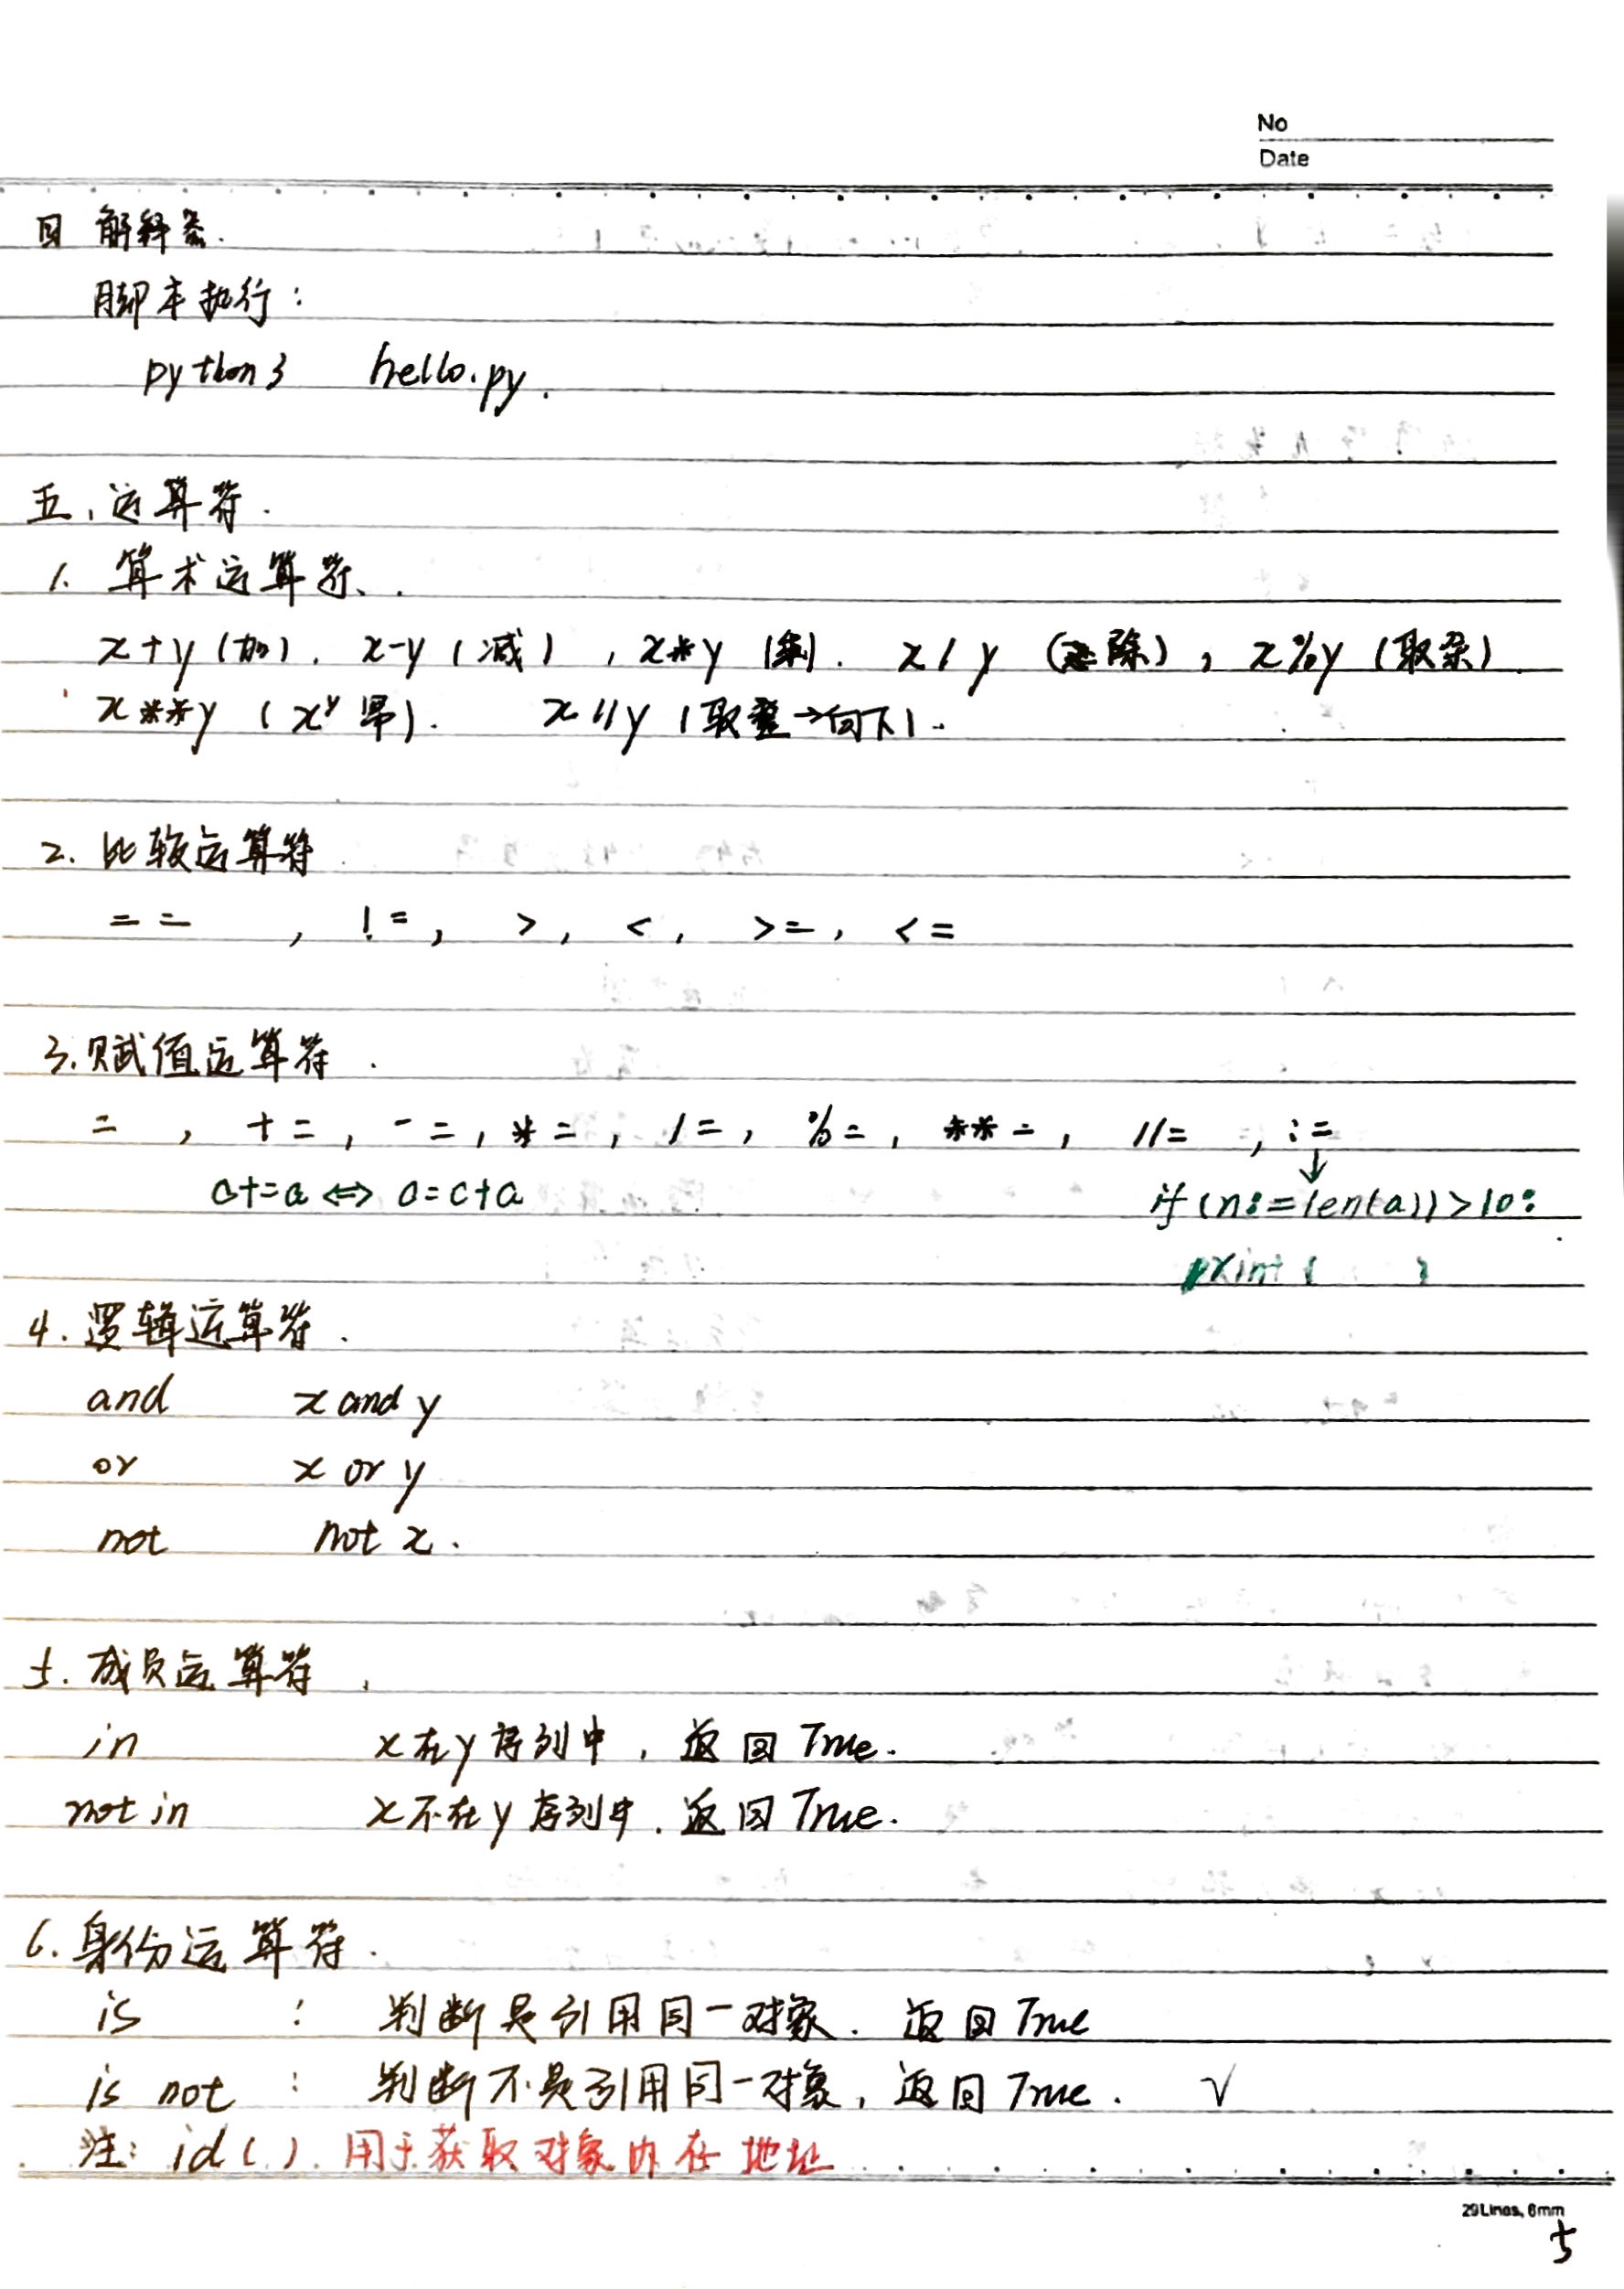 No
Date
四 解释器.
脚本执行:
python3 hello.py.
五、运算符.
1. 算术运算符、.
x+y (加), x-y (减), x*y (乘). x/y (除), x%y (取余).
x**y (xʸ 幂). x//y (取整→向下).
2. 比较运算符
==, !=, >, <, >=, <=
3.赋值运算符.
=, +=, -=, *=, /=, %=, **=, //=, :=
↓
c+=a ⇔ c=c+a if (n:=len(a))>10:
print( )
4. 逻辑运算符.
and x and y
or x or y
not not x.
5. 成员运算符.
in x在y序列中, 返回True.
not in x不在y序列中. 返回True.
6. 身份运算符.
is : 判断是引用同一对象. 返回True
is not : 判断不是引用同一对象, 返回True. √
注: id( ). 用于获取对象内存地址
29Lines, 6mm
5